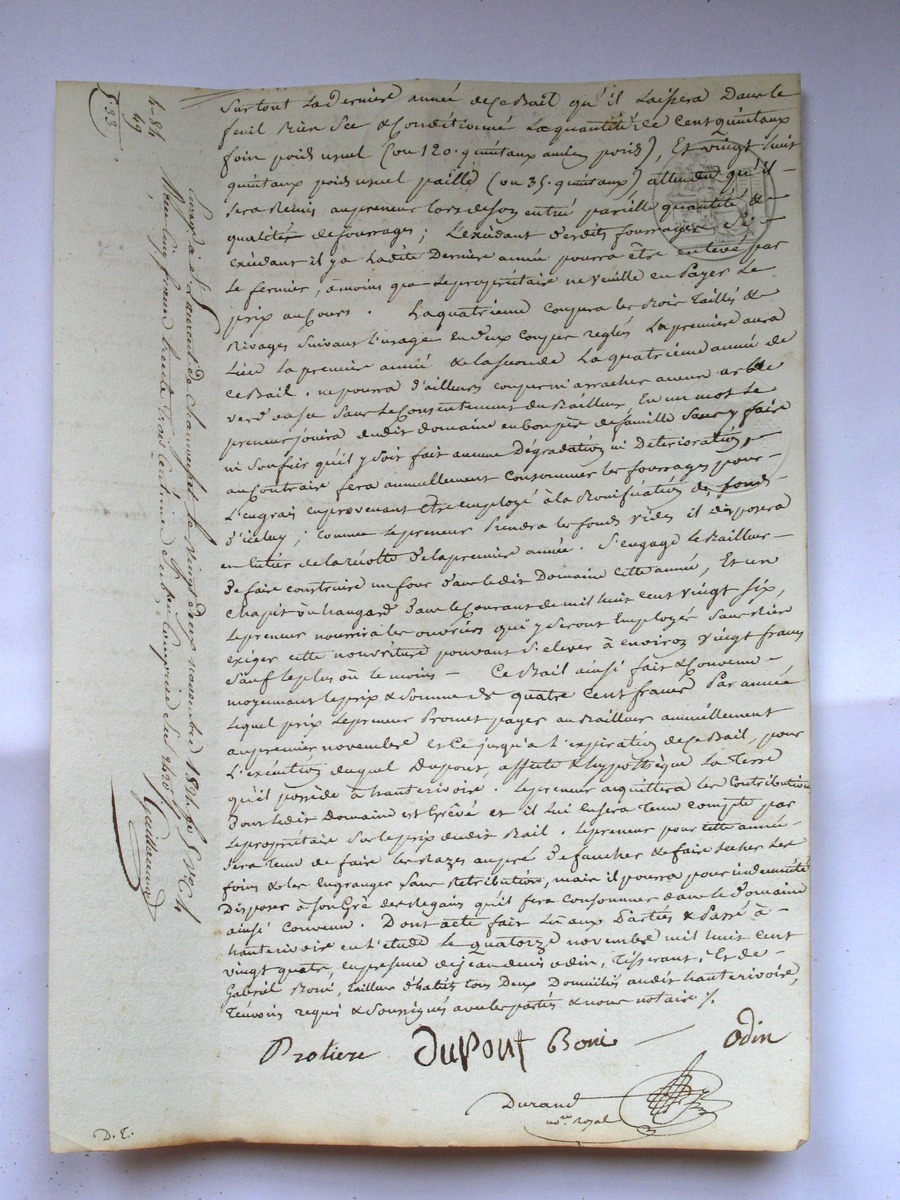 Surtout La dernière année de ce Bail qu'il Laissera Dans le
feuil Bien Sec & Conditionné La quantité de Cent quintaux
foin poid usuel (ou 120. quintaux ancien poids), Et vingt huit
quintaux poids usuel paille (ou 35. quintaux), attendu qu'il
Sera Remis au preneur lors de Son entrée pareille quantité &
qualités de fourrages; L'exédant d'esdits fourrages Si
exédant il y a Ladite Dernière année pourra être enlevé par
Le fermier, à moins que Le propriétaire ne veuille en Payer Le
prix au Cours. La quatrieme coupera les Bois Taillis &
Rivages Suivant l'usage en deux coupes reglés La premiere aura
Lieu La premiere année & la Seconde La quatrieme année de
Ce Bail. ne pourra d'ailleurs couper ni arracher aucun arbre
verd ou sec Sans Le Consentement du Bailleur En un mot Le
preneur jouira dudit domaine en bon père de famille Sans y faire
ni Souffrir qu'il y Soit fait aucune Dégradation ni Déterioration,
au Contraire fera annuellement Consommer les fourrages pour
L'engrais en provenant être employé à la Bonification des fonds
d'iceluy; Comme Le preneur Prendra les fonds vides il disposera
en entier de la récolte de la premiere année. S'engage le Bailleur
De faire construire un four dans le dit Domaine Cette année, Et un
Chapit ou hangard Dans le Courant de mil huit Cent vingt Six,
Le preneur nourrira les ouvriers qui y Seront Employés Sans Rien
exiger cette nourriture pouvant S'elever à environ vingt francs
Sauf le plus où le moins — Ce Bail ainsi fait & Convenu
moyennant le prix & Somme de quatre Cent francs Par année
Lequel prix Le preneur Promet payer au Bailleur annuëllement
au premier novembre et Ce jusqu'a L'expiration de Ce Bail, pour
L'exécution duquel Dupont, affecte & hypothèque La Terre
qu'il possède à hauterivoire. Le preneur acquittera les Contributions
Dont le dit Domaine est Grévé et il Lui en Sera Tenu compte par
Le propriétaire Sur le prix dudit Bail. Le preneur pour Cette année
Sera tenu de faire les Razes au pré De faucher & faire Secher Les
foins & les Engranger Sans Retribution, mais il pourra pour indemnité
Disposer à Son Gré des Regains qu'il fera Consommer dans le Domaine
ainsi Convenu. Dont acte fait Lu aux Parties & Passé à
hauterivoire en l'étude Le quatorze novembre mil huit cent
vingt quatre, en présence de jean denis odin, Tisserant, Et de
Gabriel Boni, tailleur d'habits tous Deux Domiciliés audit hauterivoire,
Témoins requis & Soussignés avec les parties & nous notaire /.
Proliere Dupont Boni odin
Durand
no.re royal
D. T.
Enregé à St Laurent de Chamousset le vingt deux novembre 1824 fo
Reçu cinq francs trente trois centimes
Guillaume
4-84
49
5.33